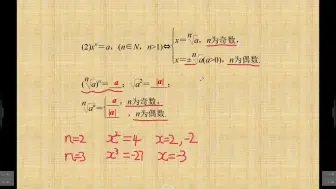 (2)xⁿ=a, (n∈N, n>1)⇔{x=ⁿ√a, n为奇数,
x=±ⁿ√a(a>0), n为偶数.
(ⁿ√a)ⁿ= a ; √a²= |a| ;
ⁿ√aⁿ={ a , n为奇数,
|a| , n为偶数.
n=2 x²=4 x=2,-2
n=3 x³=-27 x=-3